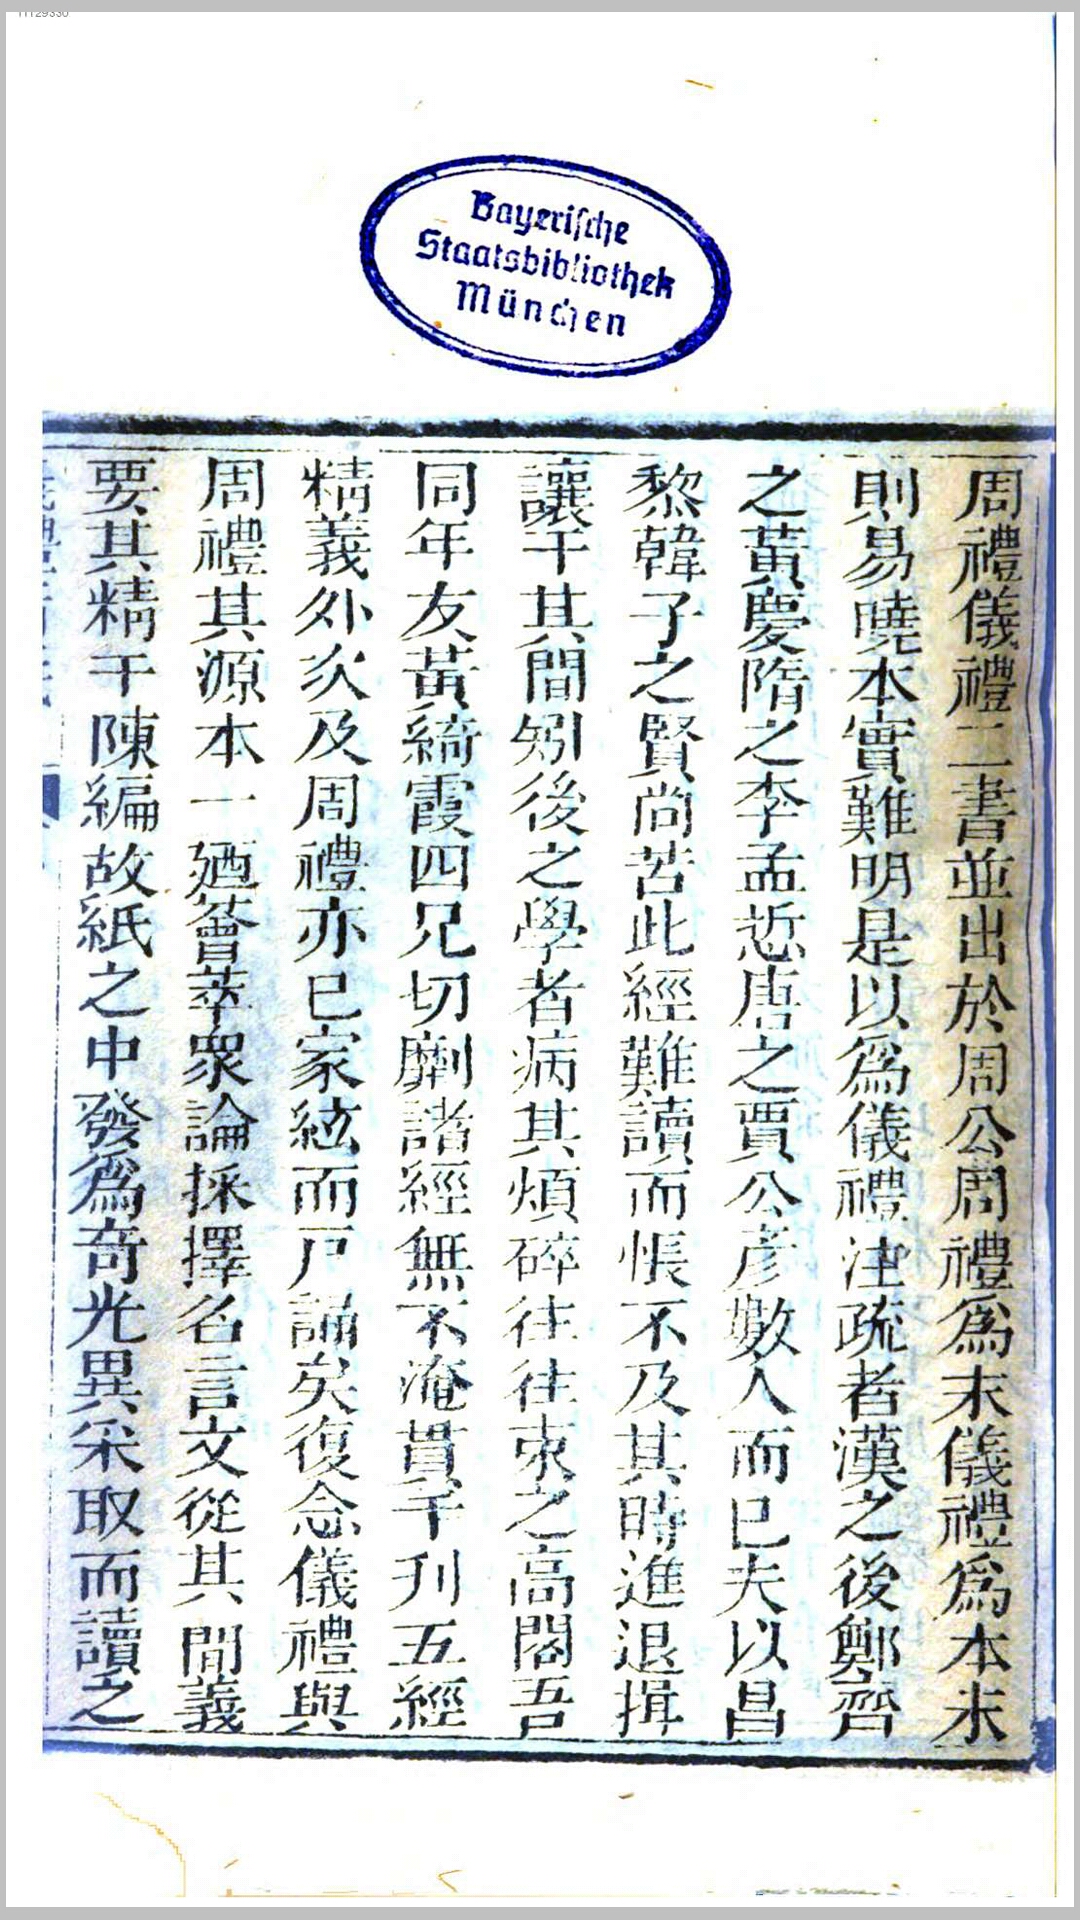 Bayerische
Staatsbibliothek
München
周禮儀禮二書並出於周公周禮爲末儀禮爲本末
則易曉本實難明是以爲儀禮注疏者漢之後鄭齊
之黃慶隋之李孟悊唐之賈公彥數人而已夫以昌
黎韓子之賢尚苦此經難讀而悵不及其時進退揖
讓于其間矧後之學者病其煩碎往往束之高閣吾
同年友黃綺霞四兄切劘諸經無不淹貫于刋五經
精義外次及周禮亦已家絃而戸誦矣復念儀禮與
周禮其源本一廼薈萃衆論採擇名言文從其間義
要其精于陳編故紙之中發爲奇光異采取而讀之